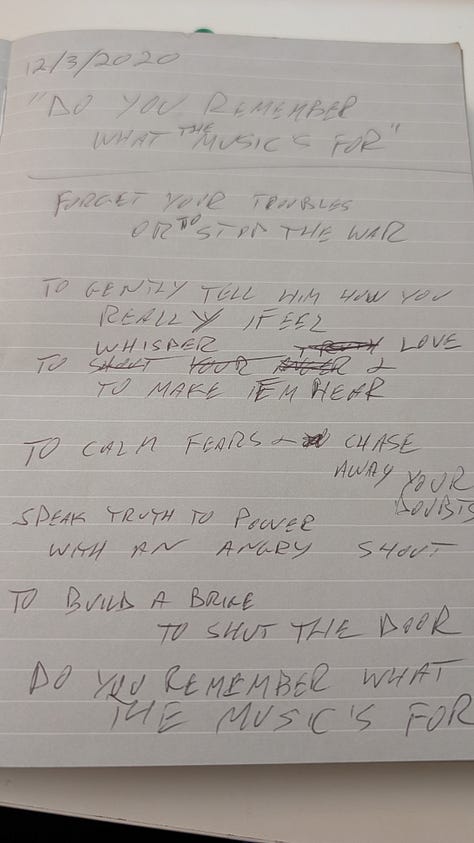 12/3/2020
"DO YOU REMEMBER
WHAT THE MUSIC'S FOR"
FORGET YOUR TROUBLES
OR TO STOP THE WAR
TO GENTLY TELL HIM HOW YOU
REALLY FEEL
WHISPER TRUTH LOVE
TO SHOUT YOUR ANGER &
TO MAKE 'EM HEAR
TO CALM FEARS & CHASE
AWAY YOUR
DOUBTS
SPEAK TRUTH TO POWER
WITH AN ANGRY SHOUT
TO BUILD A
TO SHUT THE DOOR
DO YOU REMEMBER WHAT
THE MUSIC'S FOR